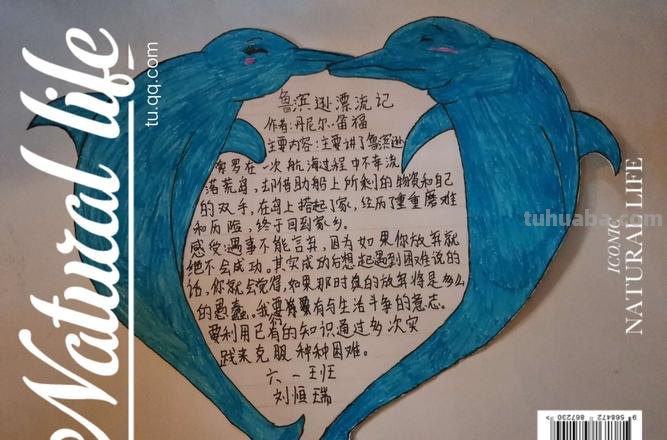 Natural life
tu.qq.com
鲁滨逊漂流记
作者:丹尼尔·笛福
主要内容:主要讲了鲁滨逊
克罗在一次航海过程中不幸流
落荒岛,去借助船上所剩的物资和自己
的双手,在岛上搭起了家,经历了重重磨难
和历险,终于回到家乡。
感受:遇事不能言弃,因为如果你放弃就
绝不会成功。其实成功与想起遇到困难说的
话,你就会觉得,如果那时候的放弃将是多么
的愚蠢。我要有与生活斗争的意志。
要利用已有的知识通过多次实
践来克服种种困难。
六一班
刘恒瑞
tuhuaba.com
ICONIC
NATURAL LIFE
9 568472 867230 >